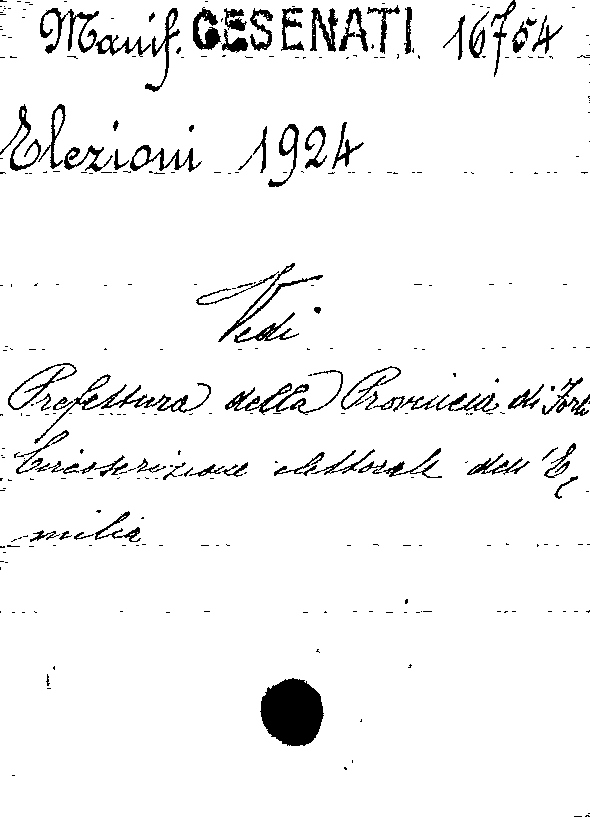 Manif. CESENATI 16754
Elezioni 1924
Vedi
Prefettura della Provincia di Forlì
Circoscrizione elettorale dell'E
milia